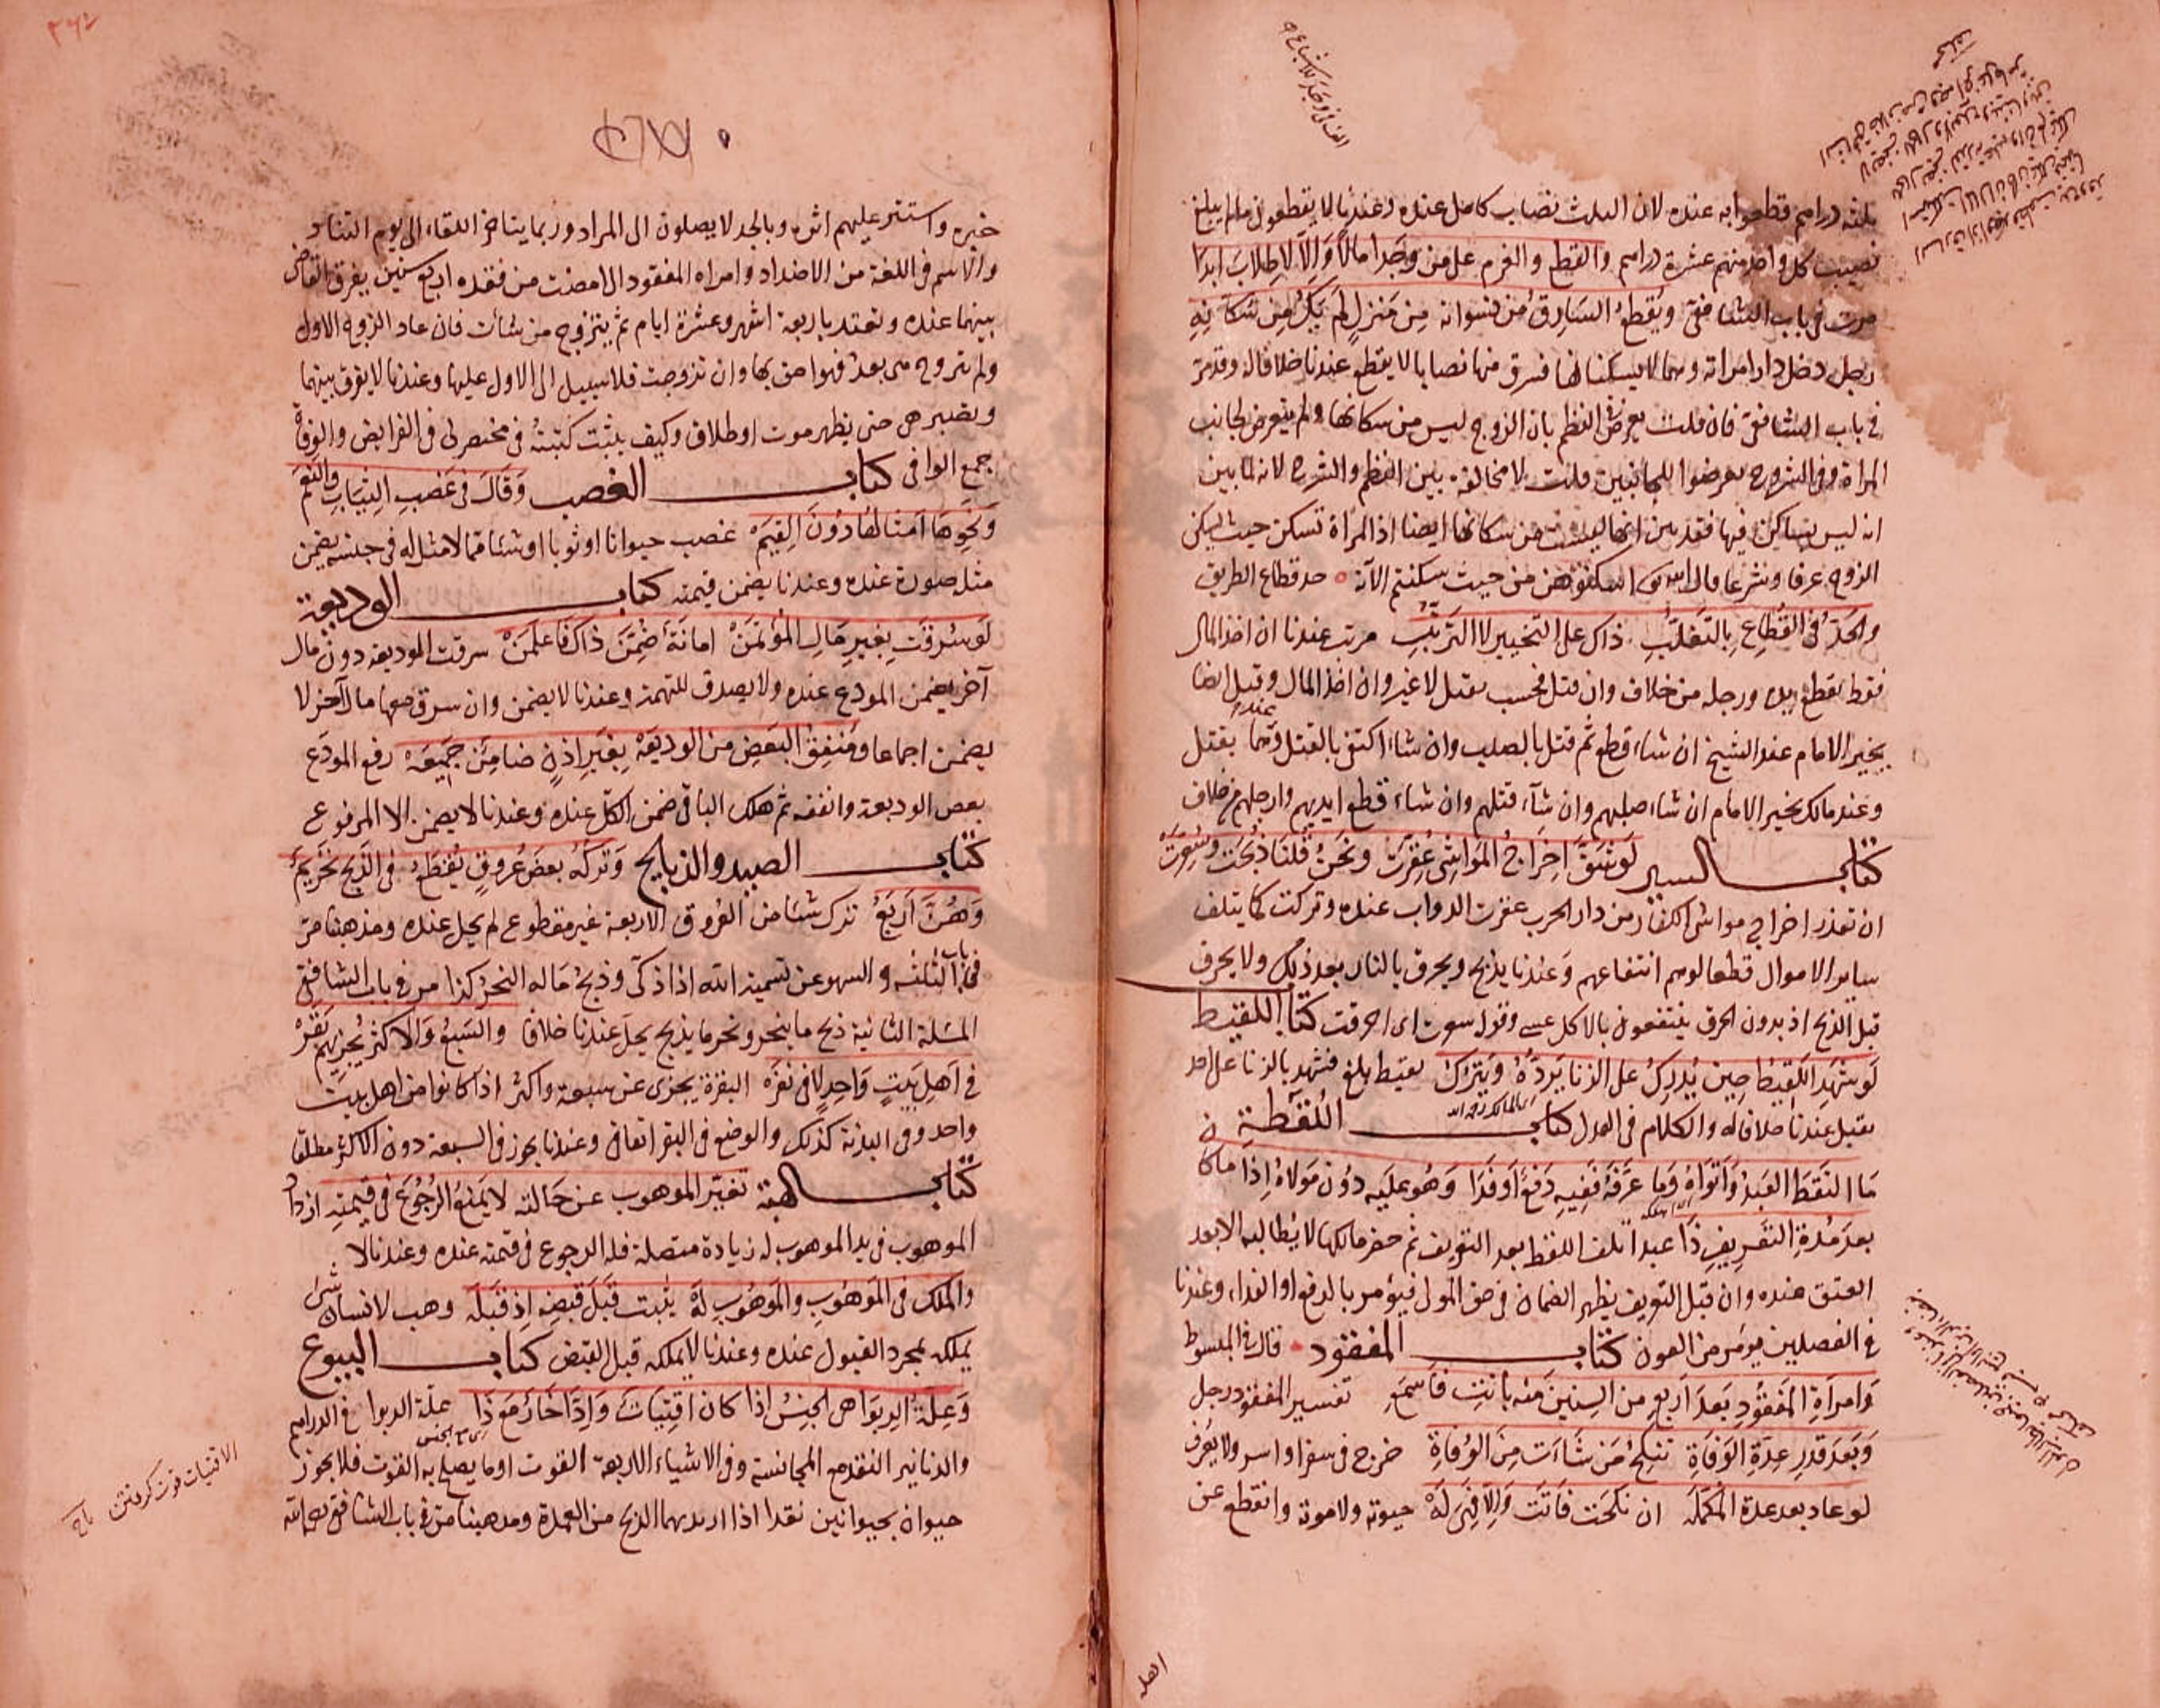 ثلثة دراهم قطعوا به عنده لان الثلث نصاب كامل عنده وعندنا لا يقطعون ما لم يبلغ
نصيب كل واحد منهم عشرة دراهم والقطع والغرم على من وجدا مالا وَاِلاَّ لاطِلابَ ابدًا
مرت فى باب الشافعى ويُقطعُ السَارِقُ من نسوانه مِن مَنزلٍ لَم يَكُ مِن سُكّانِهِ
رجل دخل دار امراته وهما لا يسكنانها فسرق منها نصابا لا يقطع عندنا خلافا له وقد مر
فى باب الشافعى فان قلت تعرض النظم بان الزوج ليس من سكانها ولم يتعرض لجانب
المراة وفى الشروح تعرضوا للجانبين قلت لا مخالفة بين النظم والشرح لانه لما بين
انه ليس بساكن فيها فقد بين انها ليست من سكانها ايضا اذ المراة تسكن حيث يسكن
الزوج عرفا وشرعا قال الله تعالى اسكنوهن من حيث سكنتم الآية حد قطاع الطريق
والحَدُّ فى القُطّاعِ بِالتَغلّبِ ذاك على التخيير لا الترتّبِ مرت عندنا ان اخذ المال
فقط يقطع يده ورجله من خلاف وان قتل فحسب يقتل لا غير وان اخذ المال وقتل ايضا
يخير الامام عند الشيخ ان شاء قطع ثم قتل بالصلب وان شاء اكتفى بالقتل وعندهما يقتل
وعند مالك يخير الامام ان شاء صلبهم وان شآء قتلهم وان شاء قطع ايديهم وارجلهم من خلاف
كتاب السير لَو شَقَّ اِخرَاجُ المَوَاشِى عُقِرَت ونَحنُ قُلنَا ذُبِحَت وسُعِّرَت
ان تعذر اخراج مواشى الكفار من دار الحرب عقرت الدواب عنده وتركت كما يتلف
سائر الاموال قطعا لوهم انتفاعهم وعندنا يذبح ويحرق بالنار بعد ذلك ولا يحرق
قبل الذبح اذ بدون الحرق ينتفعون بالاكل عسى وقوله سعرت اى احرقت كتاب اللقيط
لَو شَهِدَ اللَقِيطُ حِينَ يُدرِكُ على الزنا يَرُدّهُ وَيَترُكُ لقيط بلغ فشهد بالزنا على احد
تقبل عندنا خلافا له والكلام فى العدل كتاب اللُقَطَة
مَا التَقَطَ العَبدُ وَاَتوَاهُ وَمَا عَرَّفَهُ فَفِيهِ دَفعٌ اَو فِدَا وَهُو عَلَيه دُونَ مَولاهُ اِذَا ما كا
بعد مُدةِ التَعرِيفِ ذَا عبد اتلف اللقط بعد التعريف ثم حضر مالكها لا يطالبه الا بعد
العتق عنده وان قبل التعريف يظهر الضمان فى حق المولى فيؤمر بالدفع او الفداء وعندنا
فى الفصلين يؤمر كتاب المفقود قال فى المبسوط
وَامراَةِ المَفقُودِ بَعدَ اَربعِ مِن السِنِينَ مِنه بانَت فَاسمَعِ تفسير المفقود رجل
وَبَعدَ قَدرِ عِدّةِ الوَفَاةِ تَنكِحُ مَن شَاءَت مِنَ خرج فى سفر او اسر ولا يعرف
لو عاد بعد عدة المكملَه ان نكحت فاتَت وَاِلا فَهِىَ لَهُ حيوته ولا موته وانقطع عن
خبره واستتر عليهم اثره وبالجد لا يصلون الى المراد وربما يتاخر اللقاء الى يوم التناد
والاسم فى اللغة من الاضداد وامراة المفقود اذا مضت من فقده اربع سنين يفرق القاضى
بينهما عنده وتعتد باربعة اشهر وعشرة ايام ثم يتزوج من شاءت فان عاد الزوج الاول
ولم تتزوج هى بعد فهو احق بها وان تزوجت فلا سبيل الى الاول عليها وعندنا لا يفرق بينهما
وتصبر هى حتى يظهر موت او طلاق وكيف يثبت كتبتُه فى مختصر لى فى الفرايض والوفاة
جمع الوافى كتاب الغصب وَقَالَ فى غَصبِ الثِيَابِ والنَعَم
وَنَحوِهَا اَمثالهَا دُونَ القِيَم غصب حيوانا او ثوبا او شئا مما لا مثل له فى جنسه يضمن
مثل صورة عنده وعندنا يضمن قيمته كتاب الوديعة
لَو سُرِقَت بِغيرِ مَالِ المُؤتَمَن امانَةٌ ضُمِّنَ ذاك فَاعلَمَن سرقت الوديعة دون مال
آخر يضمن المودع عنده ولا يصدق للتهمة وعندنا لا يضمن وان سرق معها مال آخر لا
يضمن اجماعا ومُنفِقُ البَعضِ من الوديعَه بِغَيرِ اِذنٍ ضامِنٌ جَمِيعَه رفع المودَع
بعض الوديعة وانفقه ثم هلك الباقى ضمن الكل عنده وعندنا لا يضمن الا المرفوع
كتاب الصيد والذبايح وَتركُه بعضَ عُروقٍ يُقطَعُ فى الذَبحِ تحريمٌ
وَهُنَّ اَربَعُ ترك شئا من العروق الاربعة غير مقطوع لم يحل عنده ومذهبنا مر
فى باب الثلثه و السهو عن تسمية الله اذا ذكّى وذبحُ مَا له النحرُ كذا مر فى باب الشافعى
المسئلة الثانية ذبح ما ينحر ونحر ما يذبح يحل عندنا خلافا والسَبعُ وَالاكثرُ يُجزِئهم بَقَرَه
فى اَهلِ بَيتٍ وَاحِدٍ لا فى نَفَرَه البقرة يجزى عن سبعة واكثر اذا كانوا من اهل بيت
واحد وفى البدنة كذلك والوضع فى البقر اتفاقى وعندنا يجوز فى السبعة دون الاكثر مطلقا
كتاب الهبة تغيّر الموهوب عن حَالته لا يَمنَعُ الرُجُوعَ فى قيمتِهِ ازداد
الموهوب فى يد الموهوب له زيادة متصلة فله الرجوع فى قيمته عنده وعندنا لا
والمُلكُ فى المَوهُوبِ والمَوهُوبِ لَهُ يثبت قَبلَ قَبضِهِ اِذ قَبِلَه وهب لانسان شئ
يملكه بمجرد القبول عنده وعندنا لا يملكه قبل القبض كتاب البيوع
وَعِلَّةُ الرِبَوا هى الجِنسُ اذا كان اقتِيَاتٌ وَادِّخَارٌ مَع ذَا علّة الربوا فى الدراهم
والدنانير النقد مع المجانسة وفى الاشياء الاربعة القوت او ما يصلح به القوت فلا يجوز
حيوان بحيوانين نقدا اذا اريد بهما الذبح من العمدة ومذهبنا مر فى باب الشافعى رحمه الله
الاقتيات قوت كرفتن تاج